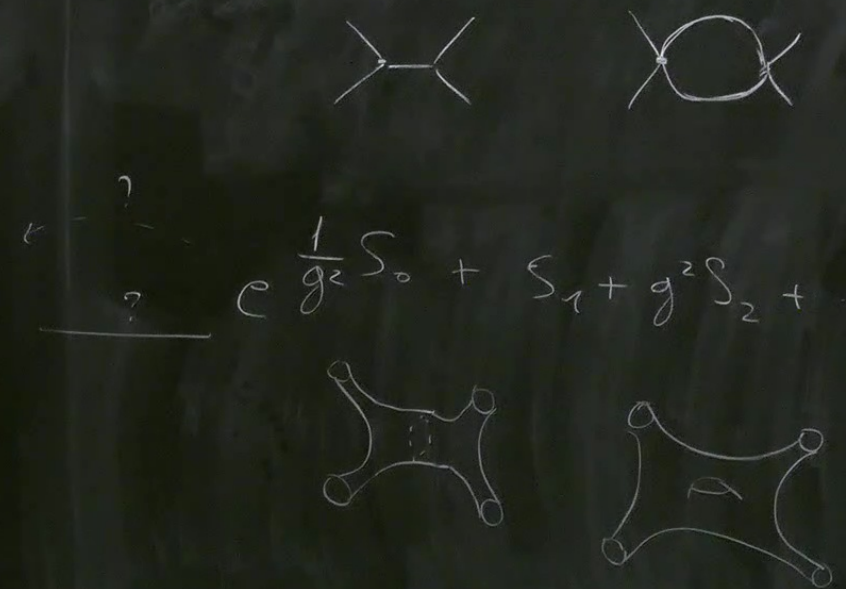 ?
?
e^{\frac{1}{g^2} S_0 + S_1 + g^2 S_2 +